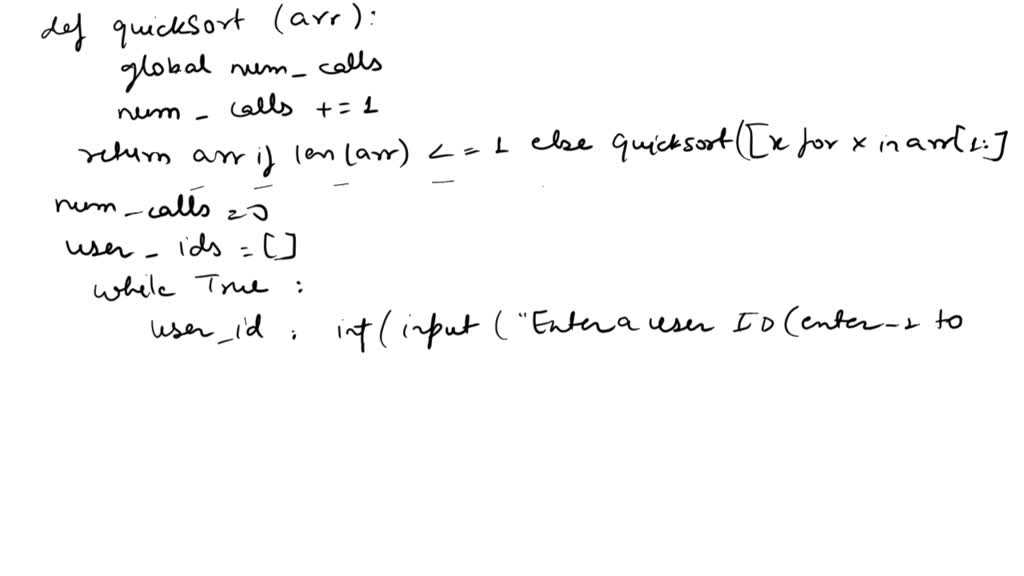 def quickSort (arr):
global num_calls
num_calls += 1
return arr if len(arr) <= 1 else quicksort([x for x in arr[1:]
num_calls = 0
user_ids = []
while True :
user_id : int(input ("Enter a user ID (enter -1 to